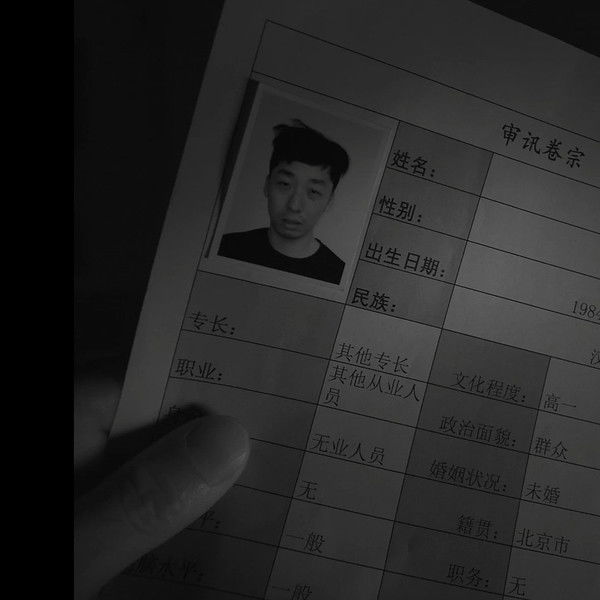 审讯卷宗
姓名：
性别：
出生日期： 1984
民族： 汉
专长： 其他专长 文化程度： 高一
职业： 其他从业人
员 政治面貌： 群众
无业人员 婚姻状况： 未婚
无 籍贯： 北京市
平： 一般 职务： 无
水平： 一般